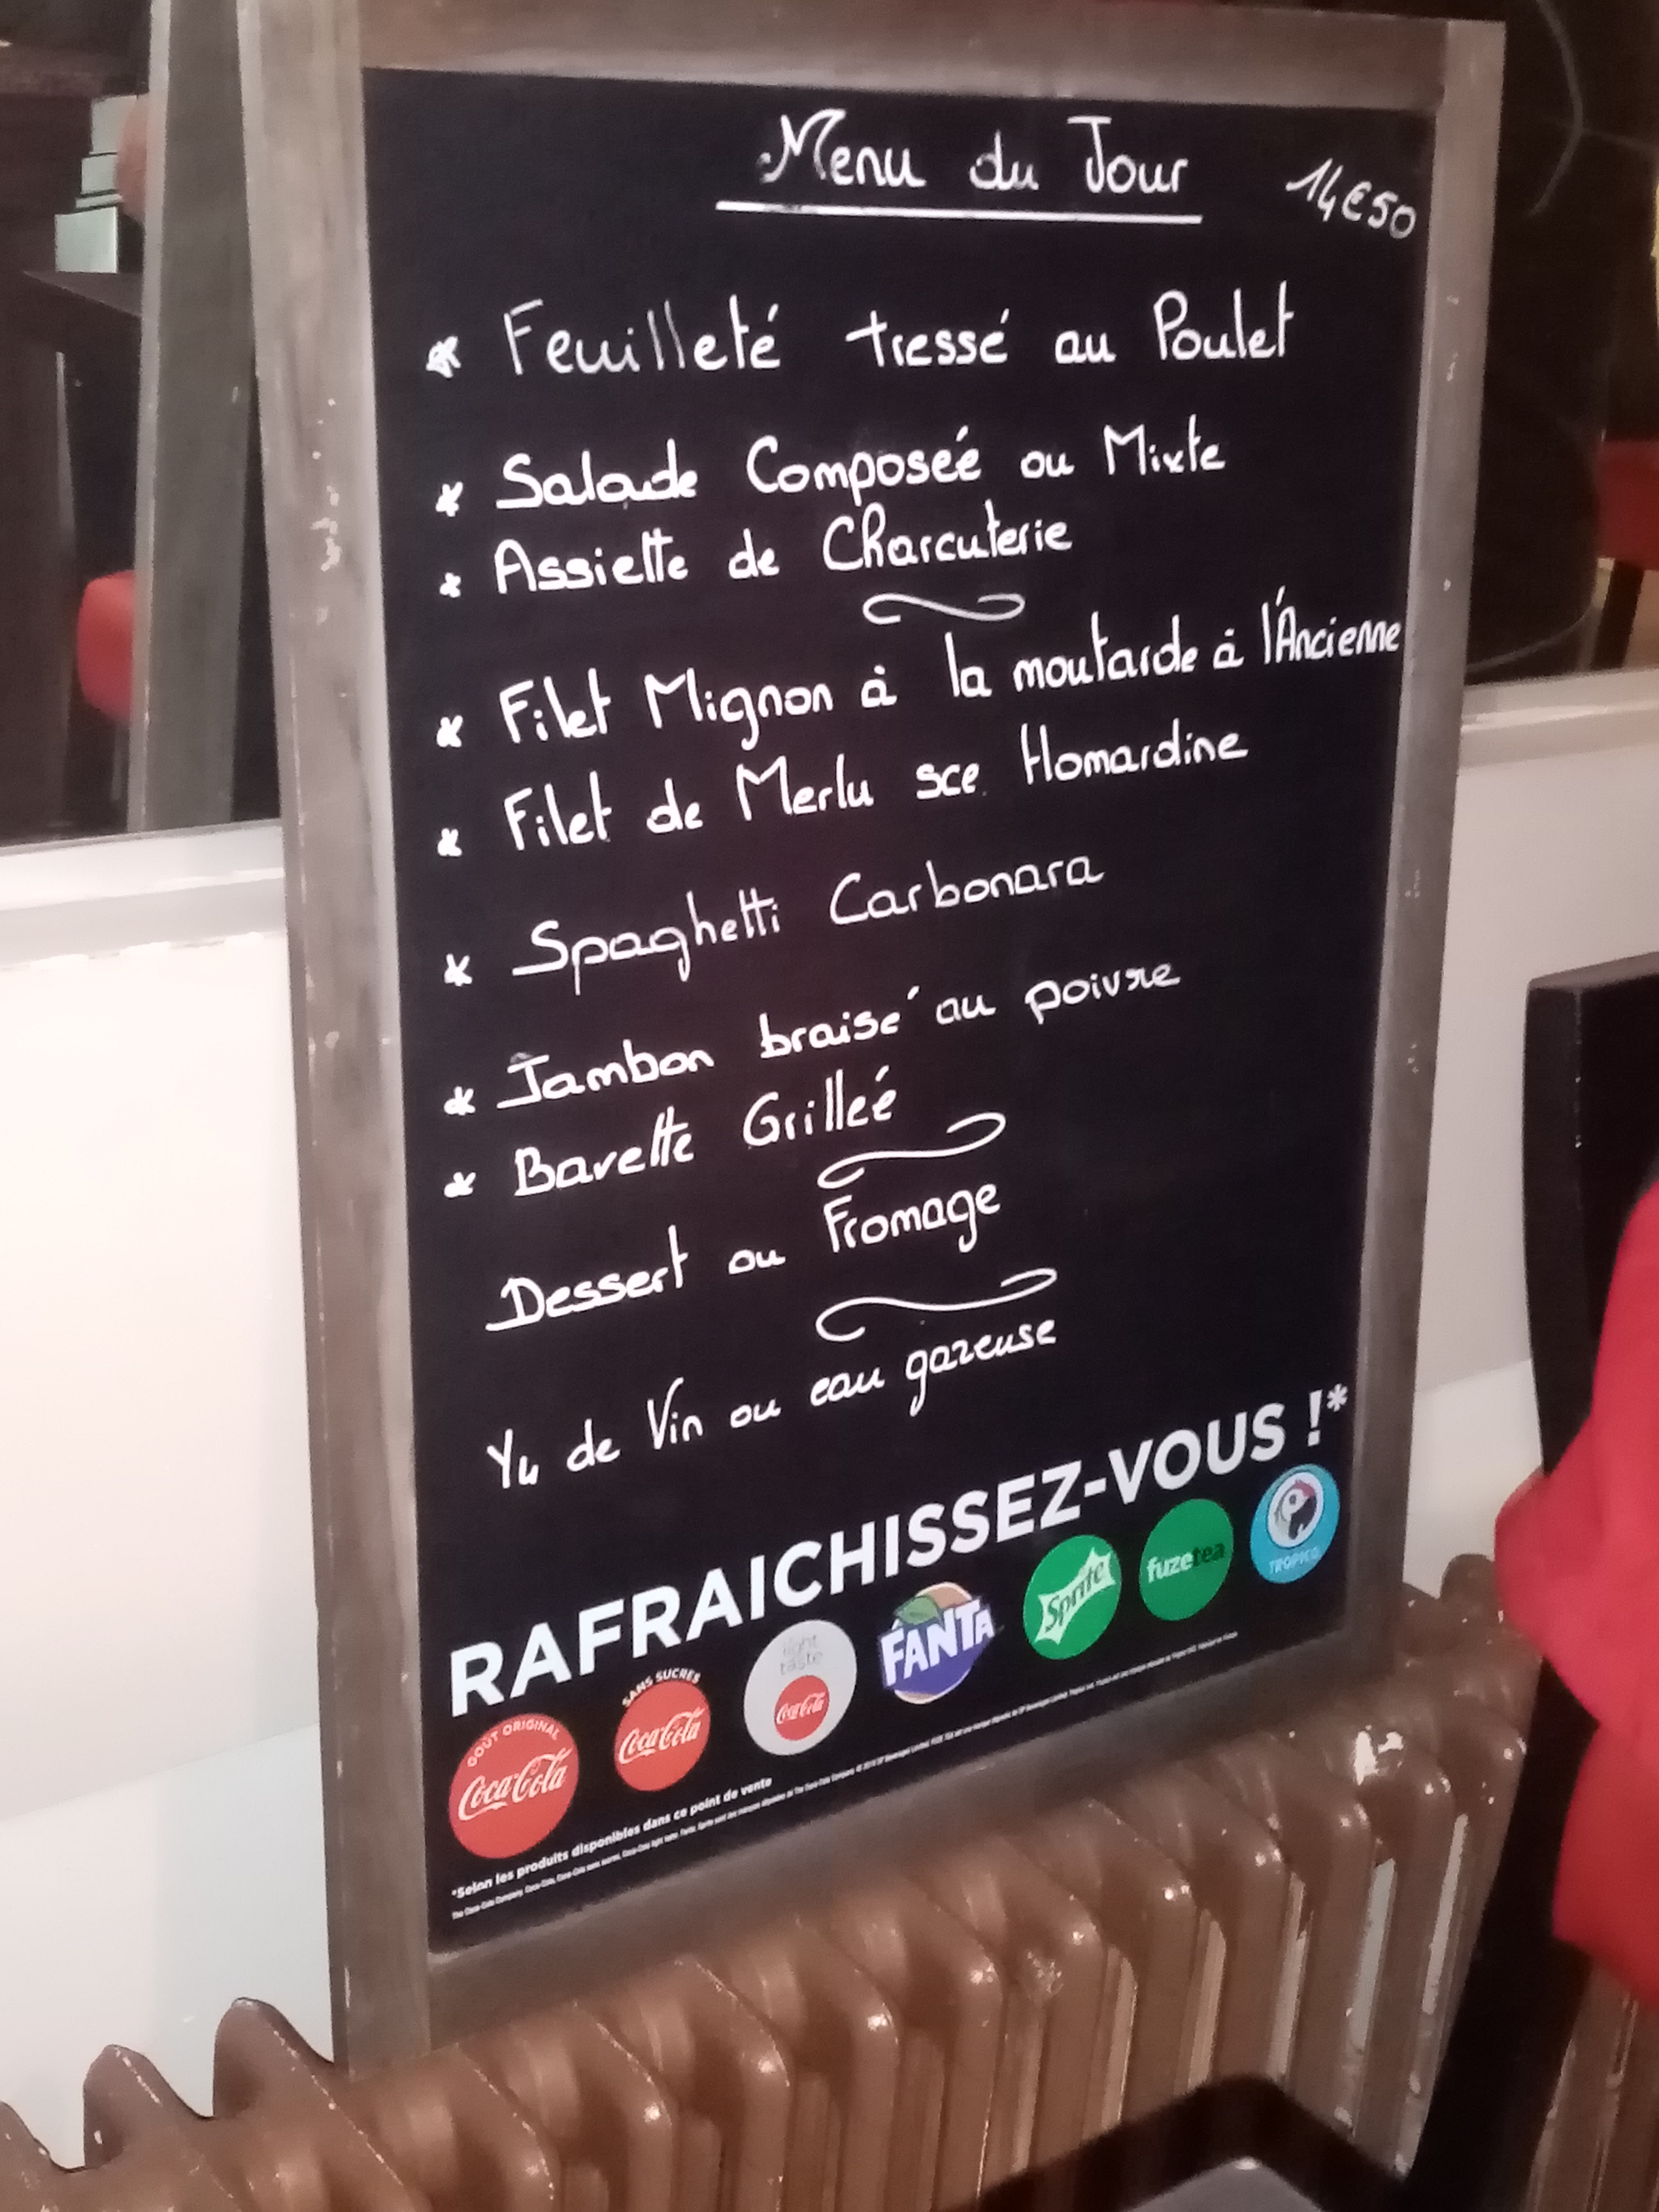 Menu du Jour 14€50
* Feuilleté tressé au Poulet
* Salade Composéé ou Mixte
* Assiette de Charcuterie
* Filet Mignon à la moutarde à l'Ancienne
* Filet de Merlu sce Homardine
* Spaghetti Carbonara
* Jambon braisé au poivre
* Bavette Grilleé
Dessert ou Fromage
1/4 de Vin ou eau gazeuse
RAFRAICHISSEZ-VOUS !*
GOÛT ORIGINAL
Coca-Cola
SANS SUCRES
Coca-Cola
light taste
Coca-Cola
FANTA
Sprite
fuzetea
TROPICO
*Selon les produits disponibles dans ce point de vente